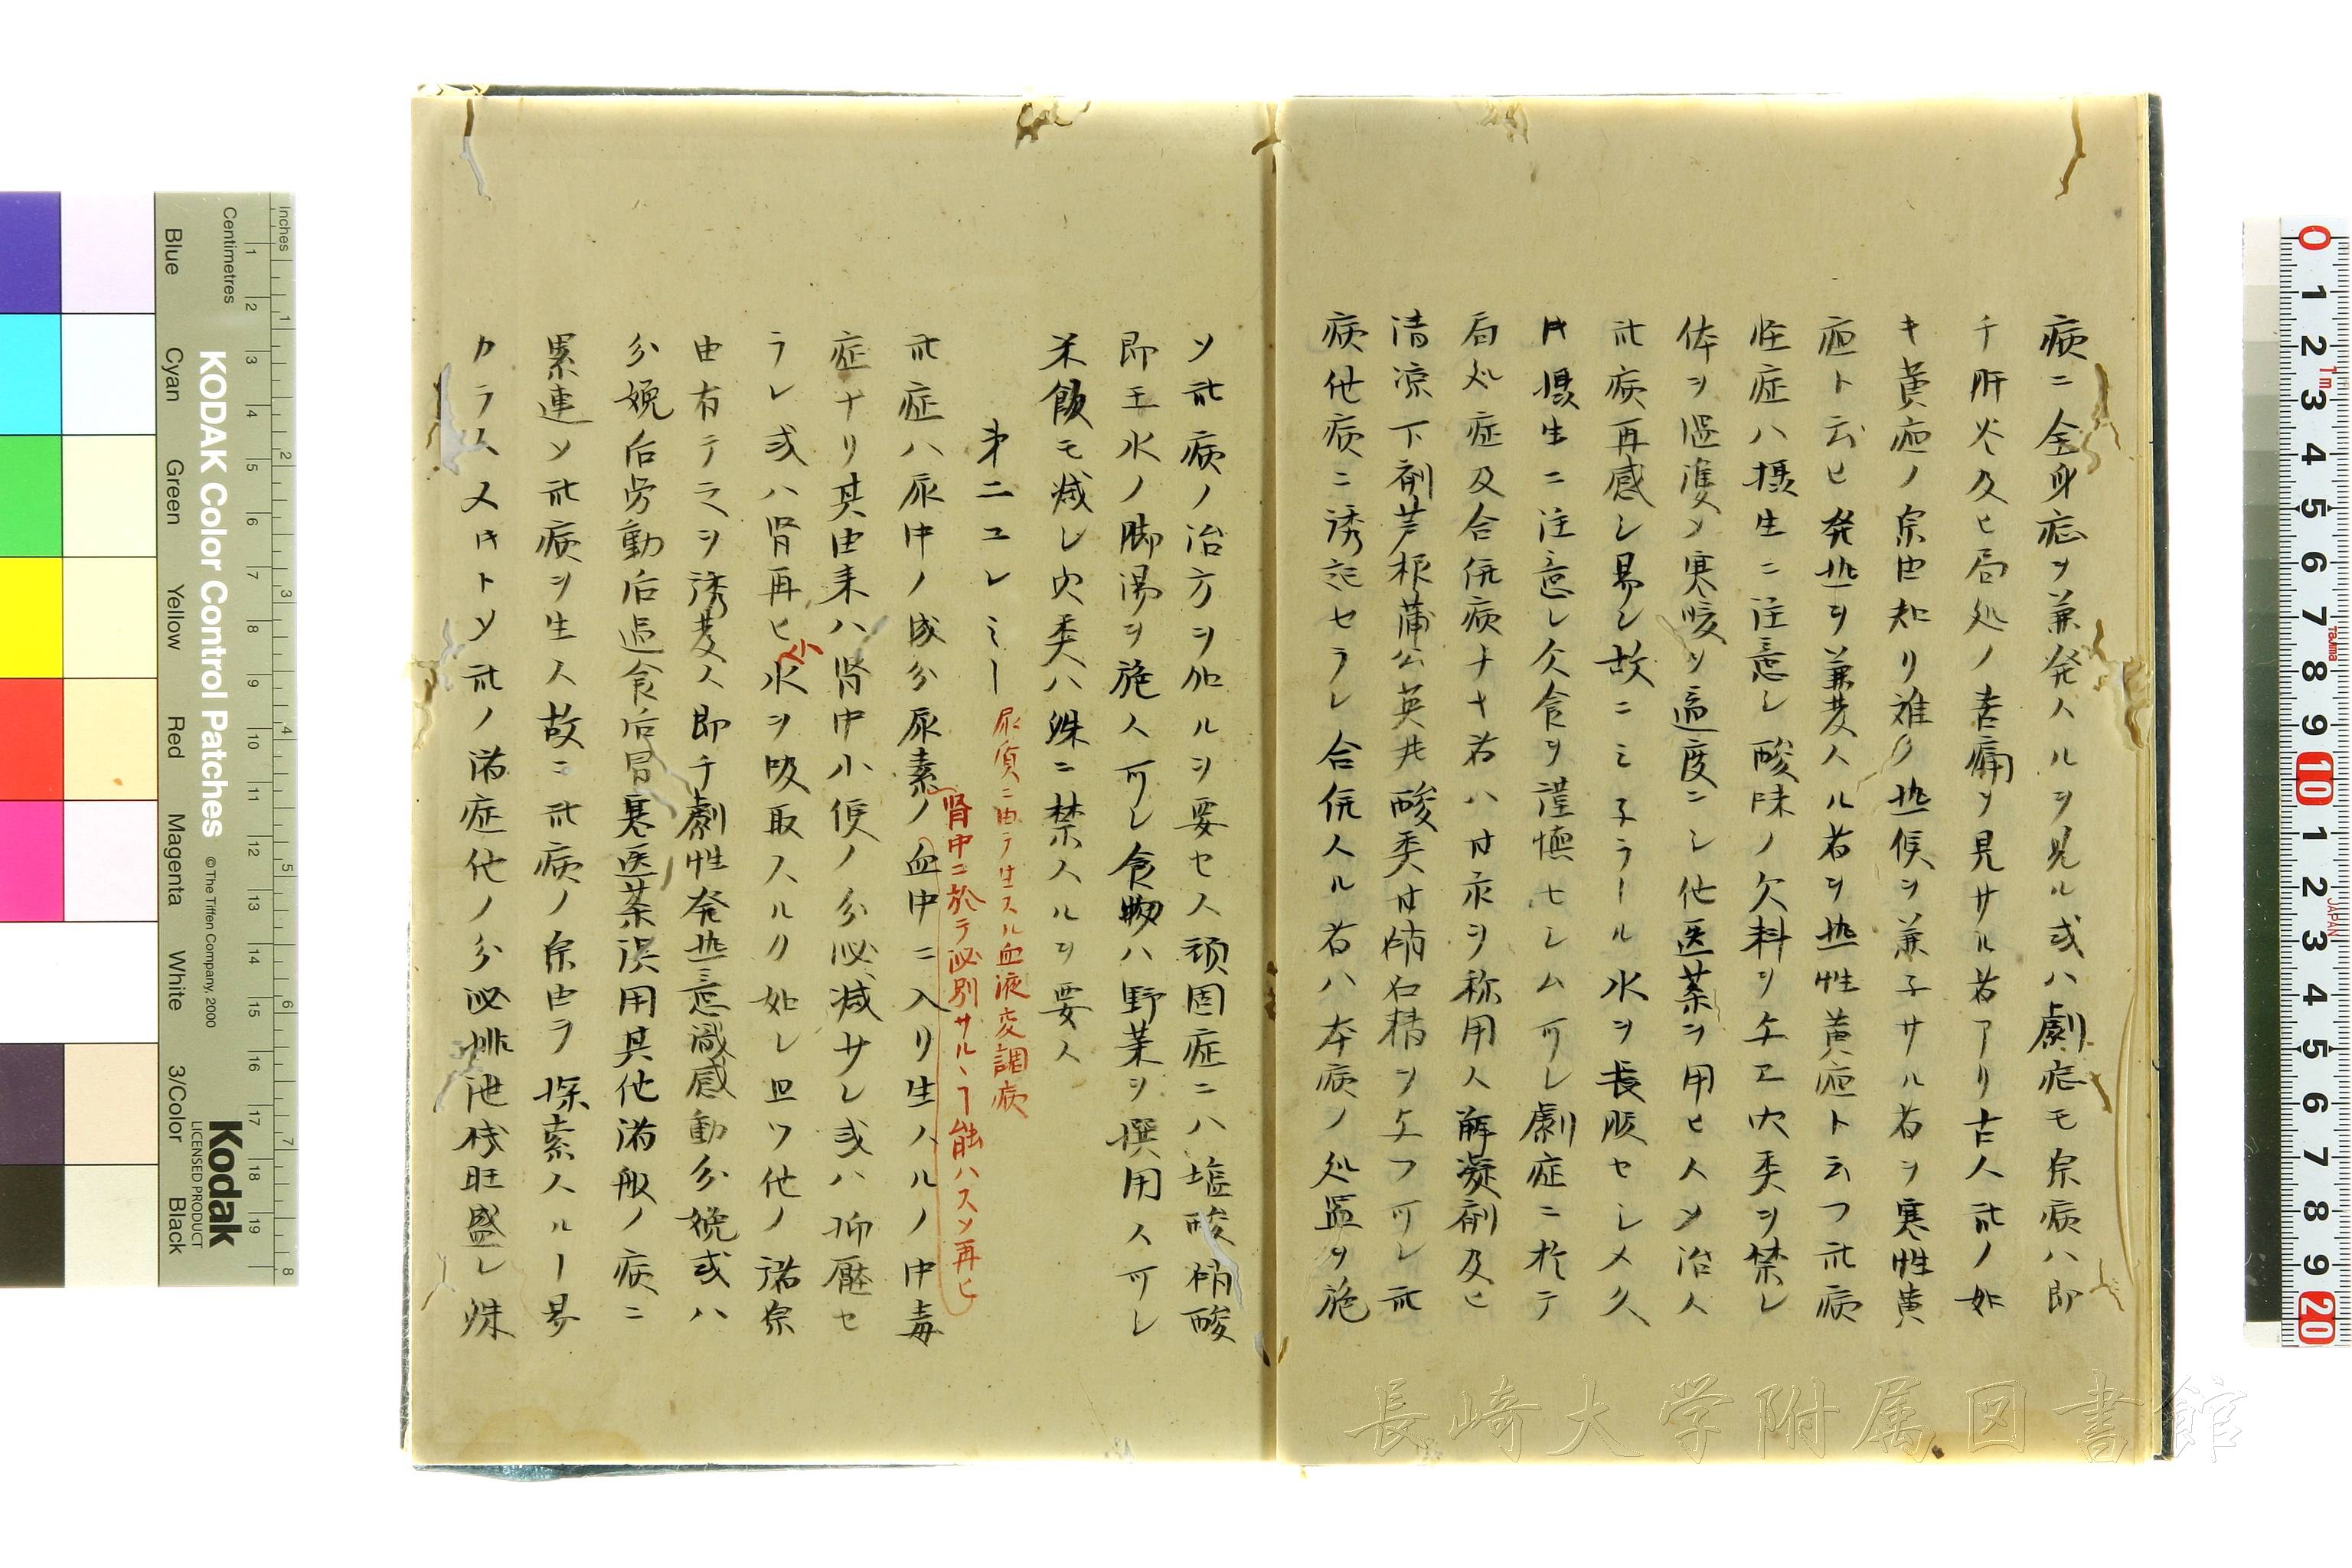 病ニ全身症ヲ兼発スルヲ見ル或ハ劇症モ原病ハ即
チ肝火及ヒ局処ノ老痛ヲ見サル者アリ古人此ノ如
キ黄疸ノ原由知リ難ク熱候ヲ兼子サル者ヲ寒性黄
疸ト云ヒ発熱ヲ兼発スル者ヲ熱性黄疸ト云フ此病
軽症ハ摂生ニ注意シ酸味ノ欠料ヲ与エ肉類ヲ禁シ
体ヲ温準シ寒暖ヲ適度ニシ他医薬ヲ用ヒスシ治ス
此病再感シ易シ故ニミ子ラール水ヲ長服セシメ久
シク摂生ニ注意シ欠食ヲ謹慎セシム可シ劇症ニ於テ
局処症及合併病ナキ者ハ甘汞ヲ称用ス解凝剤及ヒ
清涼下剤芦根蒲公英共酸類甘硝石精ヲ与フ可シ此
病他病ニ誘起セラレ合併スル者ハ本病ノ処置ヲ施
シ此病ノ治方ヲ加ルヲ要セス頑固症ニハ塩酸硝酸
即王水ノ脚湯ヲ施ス可シ食物ハ野菜ヲ撰用ス可シ
米飯モ減シ肉類ハ殊ニ禁スルヲ要ス
第二ユレミー 尿質ニ由テ生スル血液変調病
腎中ニ於テ泌別サルヽ能ハスシ再ヒ
此症ハ尿中ノ成分尿素ノ血中ニ入リ生スルノ中毒
症ナリ其由来ハ腎中小便ノ分泌減サレ或ハ抑圧セ
ラレ或ハ腎再ヒ小水ヲ吸取スルカ如シ且ツ他ノ諸原
由有テ之ヲ誘発ス即チ劇性発熱意識感動分娩或ハ
分娩后労動后過食后冒寒医薬誤用其他諸般ノ病ニ
累連シ此病ヲ生ス故ニ此病ノ原由ヲ探索スルー易
カラス又トシ此ノ諸症他ノ分泌排泄機旺盛シ殊